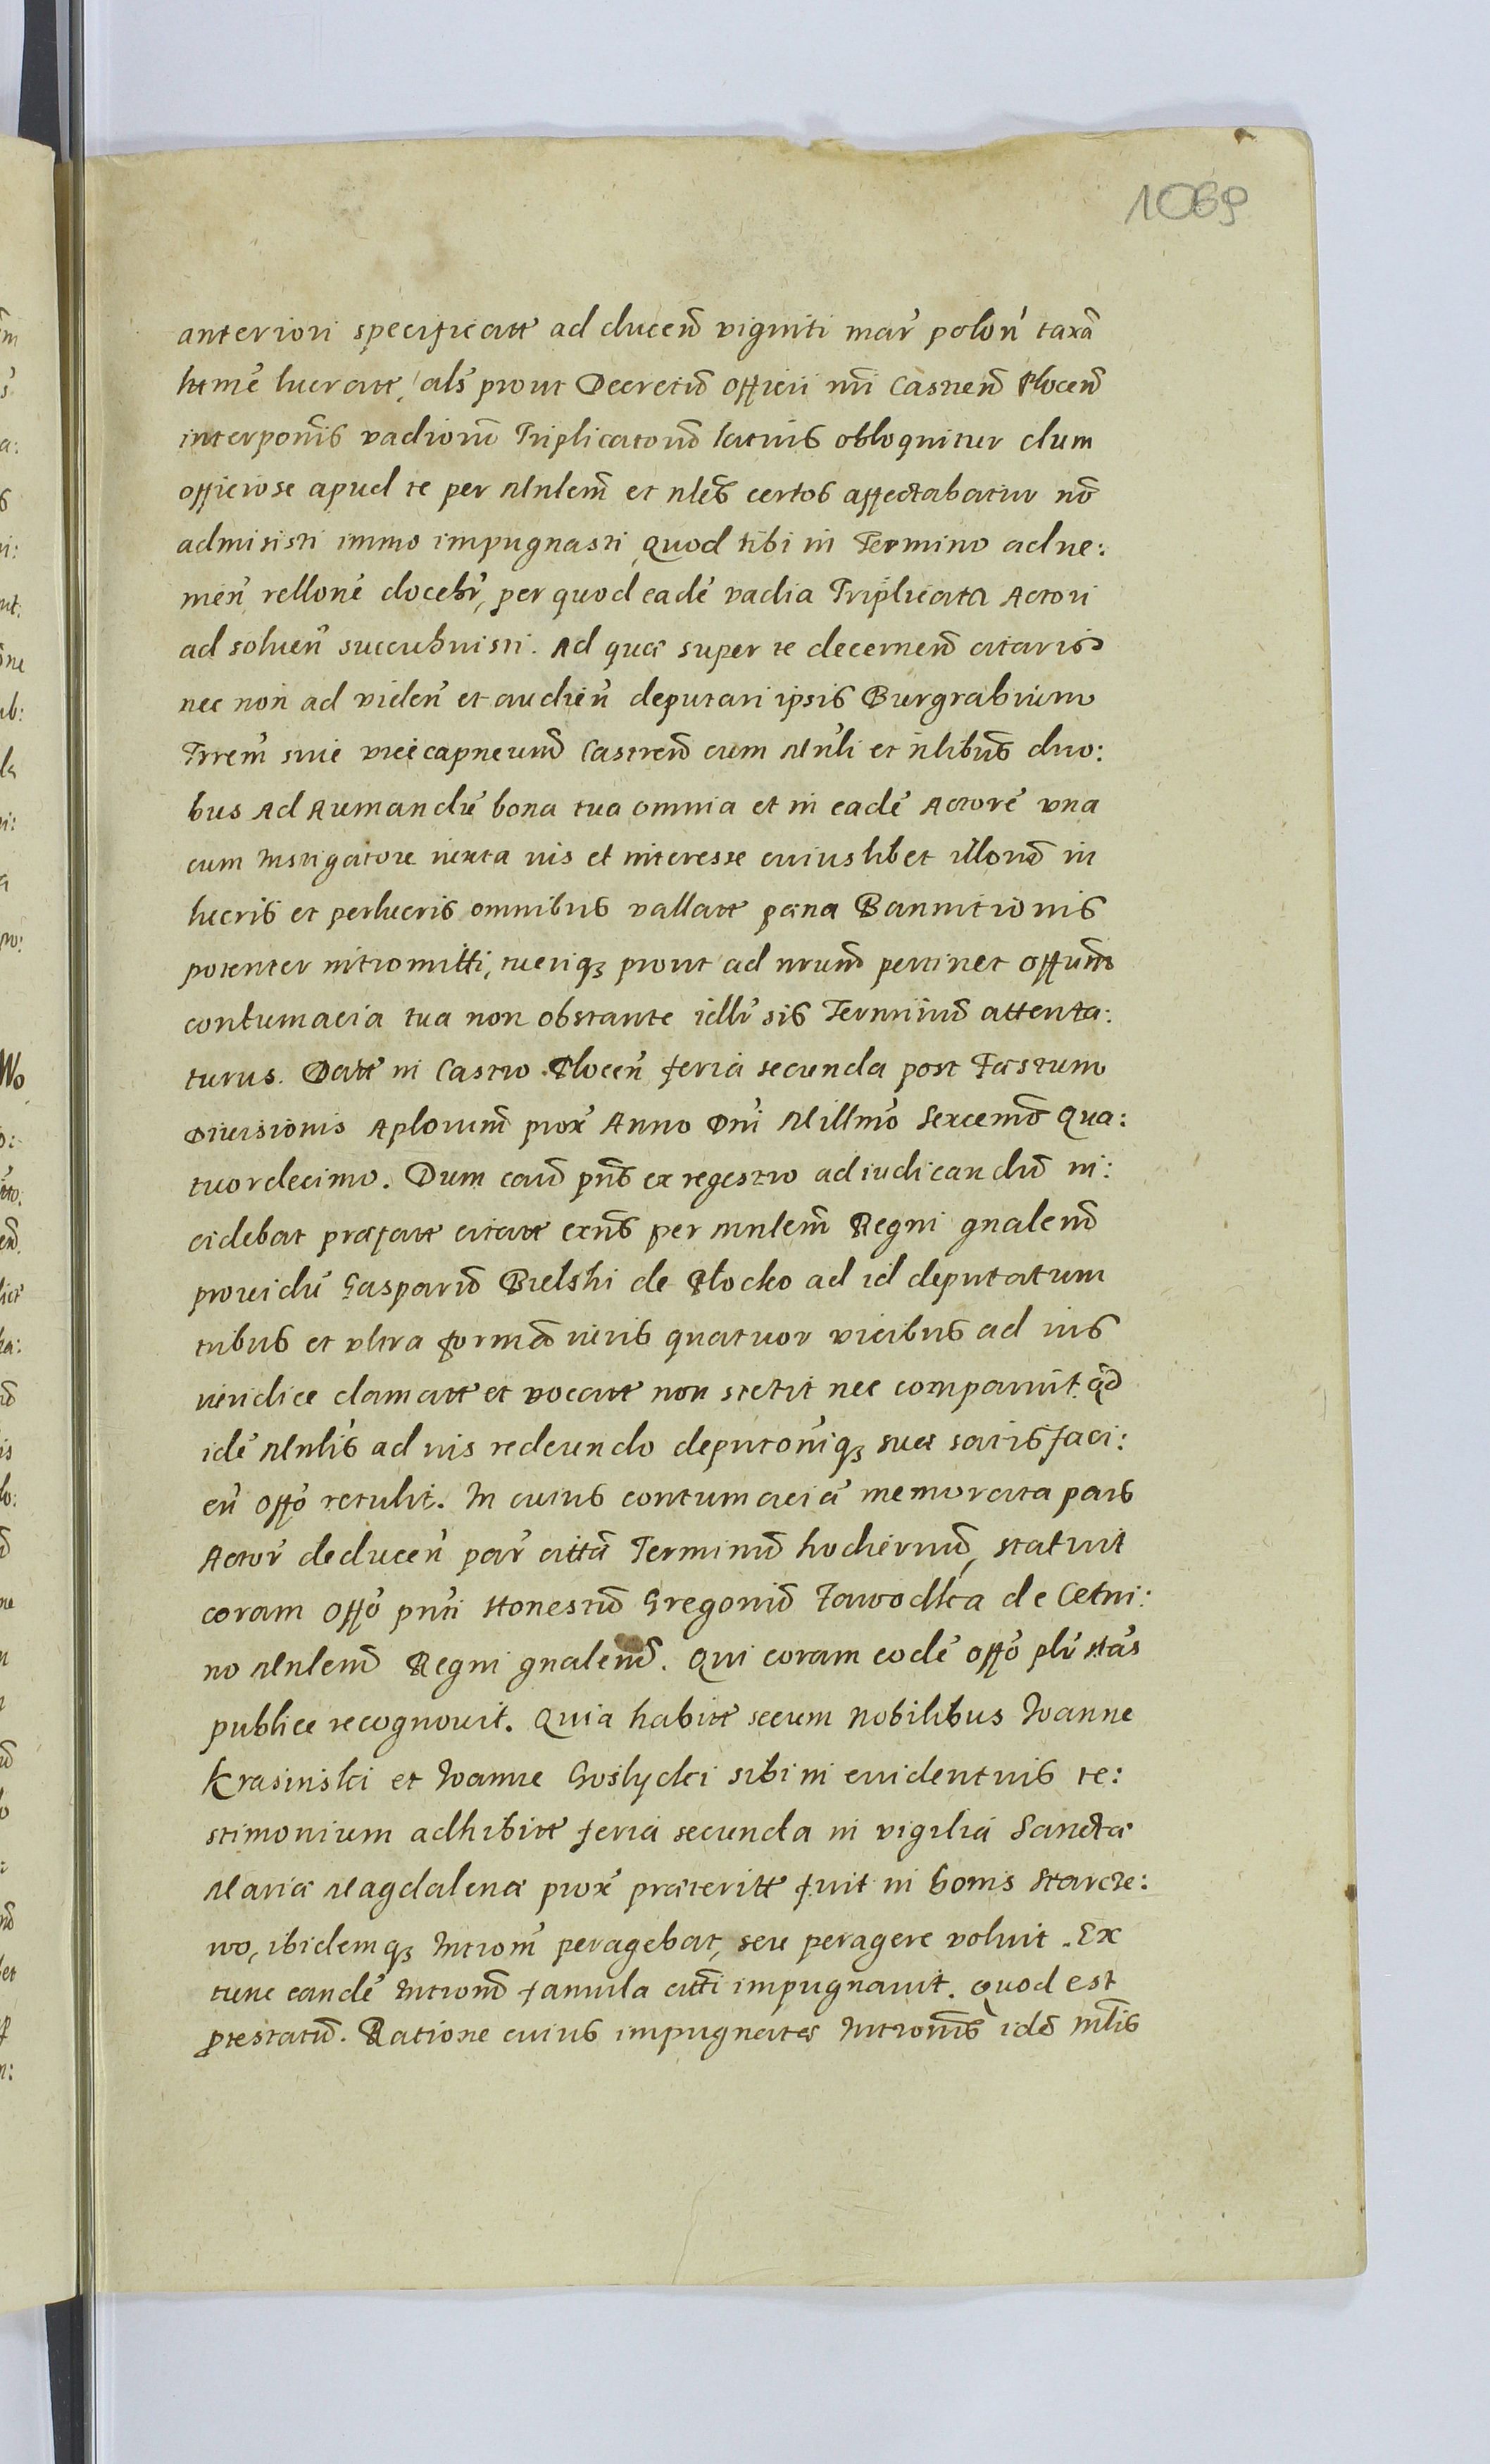 1069
anteriori specificatt ad ducen vigniti mar polon taxa
htme lucratt, als prout Decretu Officii nri Castren Plocen
interponis vadioru Triplicatoru latius obloquitur dum
officiose apud te per Mnlem et nles certos affectabatur no
admisisti immo impugnasti, quod tibi in Termino adue:
nien rellone docebr, per quod eade vadia Triplicata Actori
ad soluen succubuisti. Ad quæ super te decernen citaris
nec non ad viden et audien deputari ipsis Burgrabium
Trrem siue vicecapneum Castren cum Mnli et nlibus duo:
bus Ad Aumandu bona tua omnia et in eade Actore vna
cum Instigatore iuxta ius et interesse cuiuslibet illoru in
lucris et perlucris omnibus vallatt pæna Bannitionis
potenter intromitti, tueriq; prout ad nrum pertinet Offum
contumacia tua non obstante idlr sis Terminu attenta:
turus. Datt in Castro Plocen feria secunda post Fæstum
Diuisionis Aplorum prox Anno Dni Millmo Sexcemo Qua:
tuordecimo. Dum cau pns ex regestro adiudicandu in:
cidebat præfatt citatt exns per mnlem Regni gnalem
prouidu Gasparu Bielski de Plocko ad id deputatum
tribus et vltra forma iuris quatuor vicibus ad ius
iuridice clamatt et vocatt non stetit nec comparuit. qd
ide Mnlis ad ius redeundo deputoniq; suæ satisfaci:
en Offo retulit. In cuius contumacia memorata pars
Actor deducen par citta Terminu hodiernu, statuit
coram Offo pnti Honestu Gregoriu Zawodka de Cetni:
no Mnlem Regni gnalem. Qui coram eode offo plr stas
publice recognouit. Quia habitt secum Nobilibus Ioanne
Krasinski et Ioanne Goslycki sibi in euidentius te:
stimonium adhibitt feria secunda in vigilia Sanctæ
Mariæ Magdalenæ prox præteritt fuit in bonis Starcze:
wo, ibidemq; Introm peragebat, seu peragere voluit. Ex
tunc eande Introm famula citti impugnauit. quod est
ptestatu. Ratione cuius impugnatæ Intronis ide Mlis